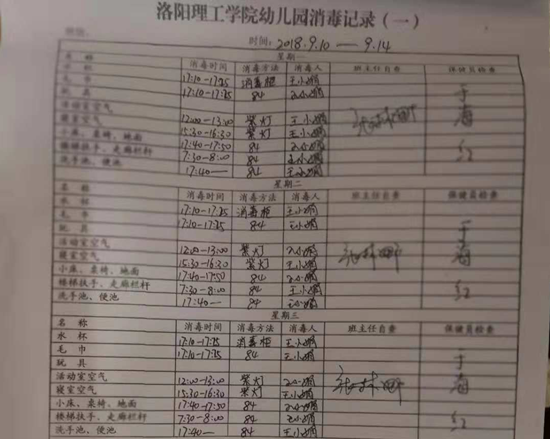 洛阳理工学院幼儿园消毒记录（一）
时间：2018.9.10 — 9.14
星期一
名 称 消毒时间 消毒方法 消毒人 班主任自查 保健员检查
水 杯 17:10-17:25 消毒柜 王小娟
毛 巾 17:10-17:25 84 王小娟
玩 具
活动室空气 12:00-13:00 紫灯 王小娟
寝室空气 15:30-16:30 紫灯 王小娟
小床、桌椅、地面 17:40-17:50 84 王小娟
楼梯扶手、走廊栏杆 7:30-8:00 84 王小娟
洗手池、便池 17:40— 84 王小娟
于海红
星期二
名 称 消毒时间 消毒方法 消毒人 班主任自查 保健员检查
水 杯 17:10-17:25 消毒柜 王小娟
毛 巾 17:10-17:25 84 王小娟
玩 具
活动室空气 12:00-13:00 紫灯 王小娟
寝室空气 15:30-16:30 紫灯 王小娟
小床、桌椅、地面 17:40-17:50 84 王小娟
楼梯扶手、走廊栏杆 7:30-8:00 84 王小娟
洗手池、便池 17:40— 84 王小娟
于海红
星期三
名 称 消毒时间 消毒方法 消毒人 班主任自查 保健员检查
水 杯 17:10-17:25 消毒柜 王小娟
毛 巾 17:10-17:25 84 王小娟
玩 具
活动室空气 12:00-13:00 紫灯 王小娟
寝室空气 15:30-16:30 紫灯 王小娟
小床、桌椅、地面 17:40-17:50 84 王小娟
楼梯扶手、走廊栏杆 7:30-8:00 84 王小娟
洗手池、便池 17:40— 84 王小娟
于海红